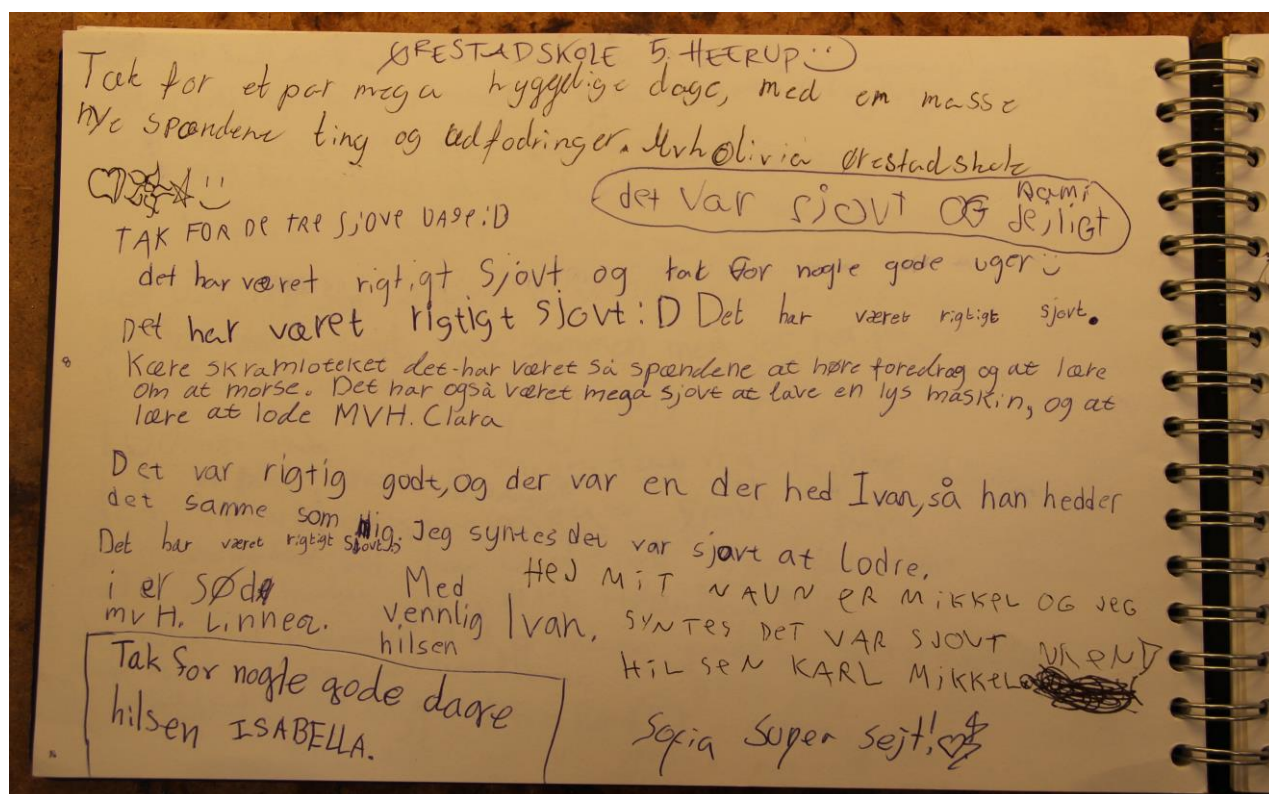 ØRESTADSKOLE 5. HEERUP :)
Tak for et par mega hyggelige dage, med em masse
nye spændene ting og udfodringer. Mvh Olivia Ørestadskole
det var sjovt OG dejliGt Rami
TAK FOR De TRe SJOVE DAGe :D
det har været rigtigt Sjovt og tak for nogle gode uger :)
Det har været rigtigt sjovt :D Det har været rigtigt sjovt.
Kære skramloteket det har været så spændene at høre foredrag og at lære
om at morse. Det har også været mega sjovt at lave en lys maskin, og at
lære at lode MVH. Clara
Det var rigtig godt, og der var en der hed Ivan, så han hedder
det samme som mig. Jeg syntes det var sjovt at lodre.
Det har været rigtigt sjovt :)
i er søde
mvH. Linnea.
Med
vennlig Ivan.
hilsen
HeJ MiT NAUN eR MiKKeL OG JeG
SYNTes DeT VAR SJOVT
HiLSeN KARL MiKKeL
Tak for nogle gode dage
hilsen ISABELLA.
Sofia Super sejt!